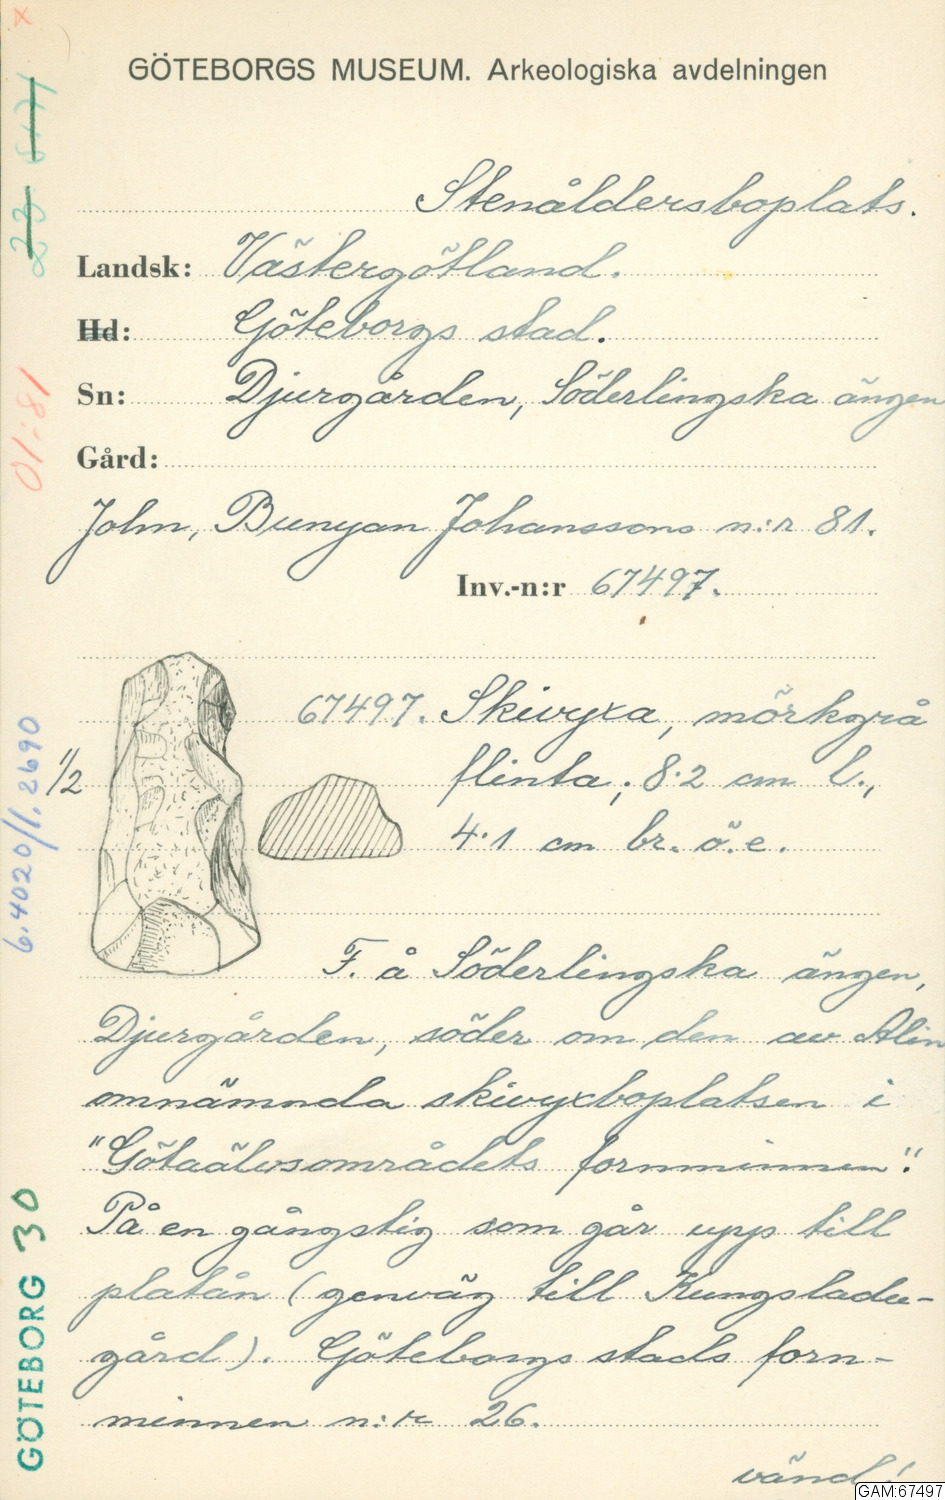 x
GÖTEBORGS MUSEUM. Arkeologiska avdelningen
Stenåldersboplats.
Landsk: Västergötland.
Hd: Göteborgs stad.
Sn: Djurgården, Söderlingska ängen
Gård:
John, Bunyan Johanssons n:r 81.
Inv.-n:r 67497.
67497. Skivyxa, mörkgrå
1/2
flinta; 8.2 cm l.,
4.1 cm br. ö.e.
F. å Söderlingska ängen,
Djurgården, söder om den av Alin
omnämnda skivyxboplatsen i
"Götaälvsområdets fornminnen".
På en gångstig som går upp till
platån (genväg till Kungsladu-
gård). Göteborgs stads forn-
minnen n:r 26.
vänd!
01:81
6.4020/1.2690
GÖTEBORG 30
GAM:67497